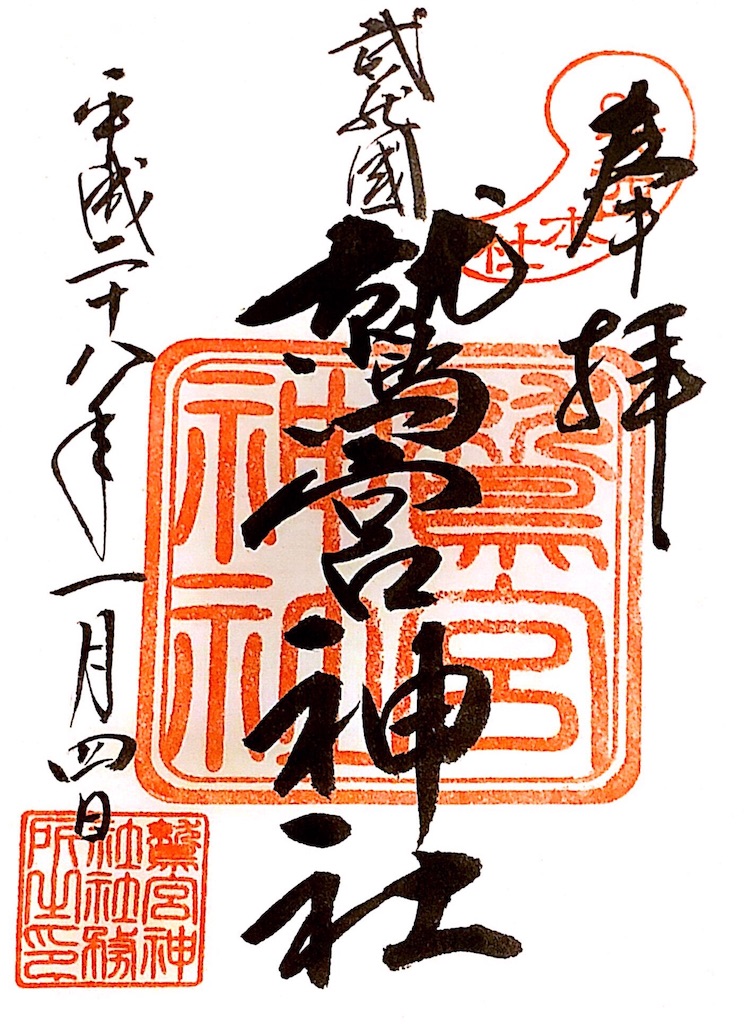 奉拝
本社
武蔵國
鷲宮神社
鷲宮
神社
平成二十八年一月四日
鷲宮神
社社務
所之印